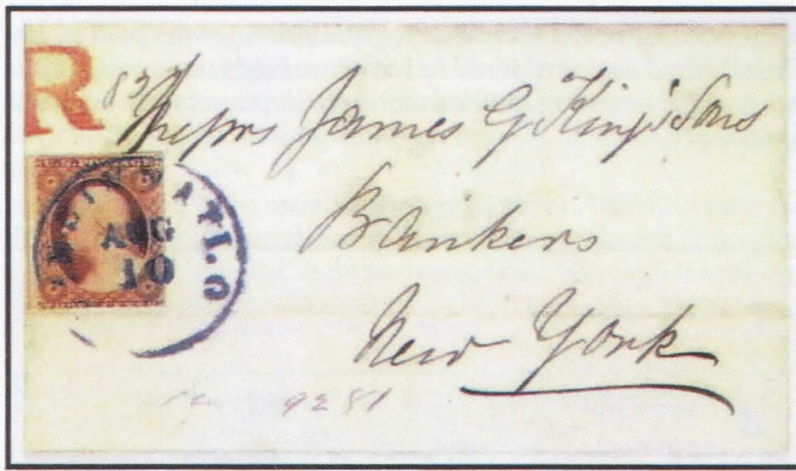 R
Messrs James G King's Sons
Bankers
New York
CINCINNATI.O
AUG
10